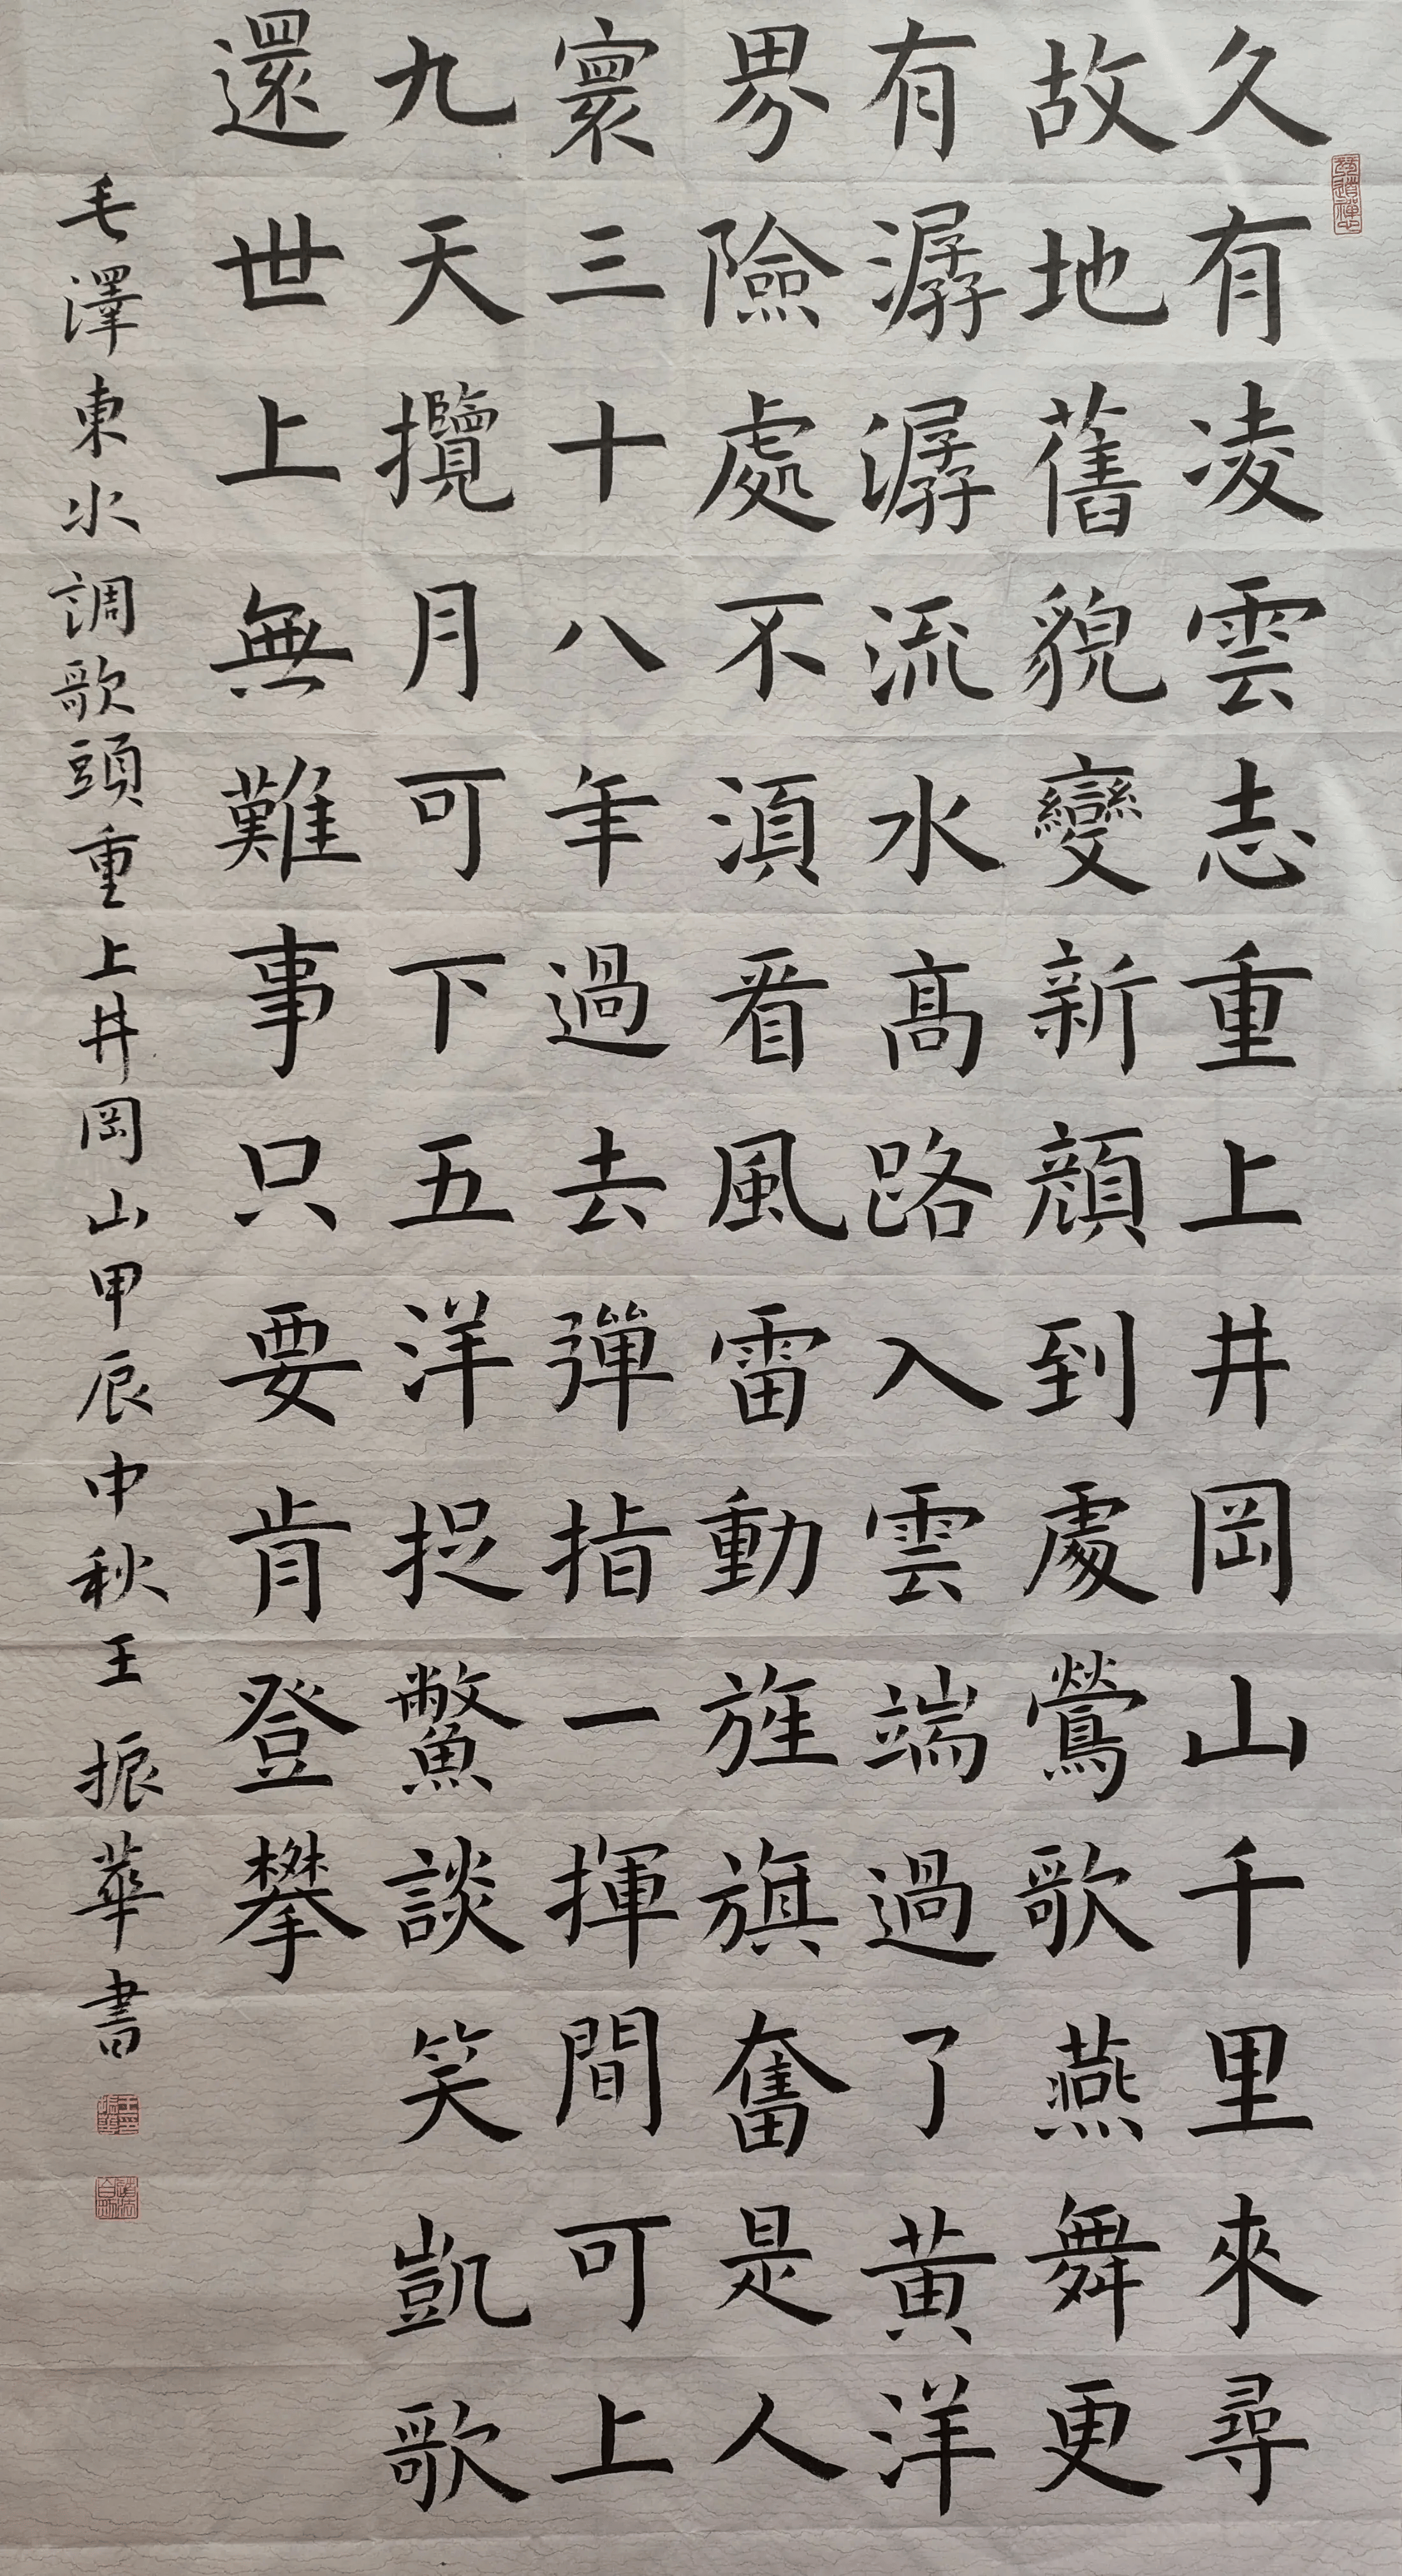 久有凌雲志重上井岡山千里來尋
故地舊貌變新顔到處鶯歌燕舞更
有潺潺流水高路入雲端過了黄洋
界險處不須看風雷動旌旗奮是人
寰三十八年過去彈指一揮間可上
九天攬月可下五洋捉鱉談笑凱歌
還世上無難事只要肯登攀
毛澤東水調歌頭重上井岡山甲辰中秋王振華書